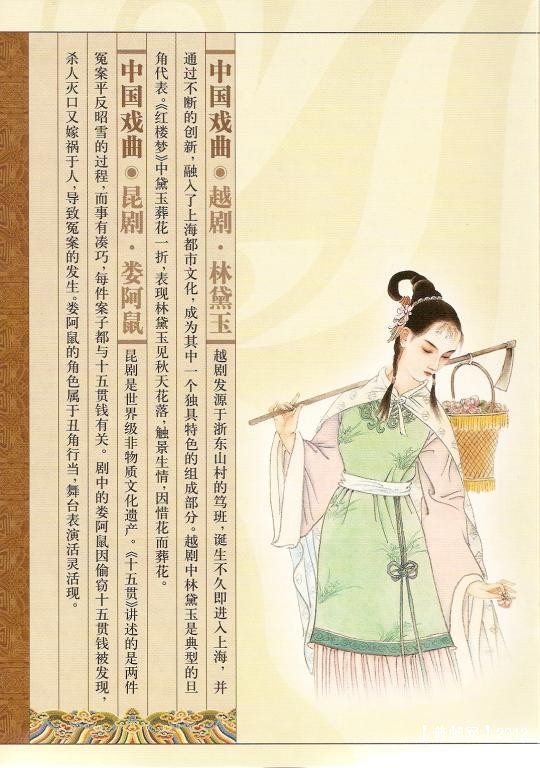 中国戏曲◉越剧·林黛玉 越剧发源于浙东山村的笃班,诞生不久即进入上海,并
通过不断的创新,融入了上海都市文化,成为其中一个独具特色的组成部分。越剧中林黛玉是典型的旦
角代表。《红楼梦》中黛玉葬花一折,表现林黛玉见秋天花落,触景生情,因惜花而葬花。
中国戏曲◉昆剧·娄阿鼠 昆剧是世界级非物质文化遗产。《十五贯》讲述的是两件
冤案平反昭雪的过程,而事有凑巧,每件案子都与十五贯钱有关。剧中的娄阿鼠因偷窃十五贯钱被发现,
杀人灭口又嫁祸于人,导致冤案的发生。娄阿鼠的角色属于丑角行当,舞台表演活灵活现。